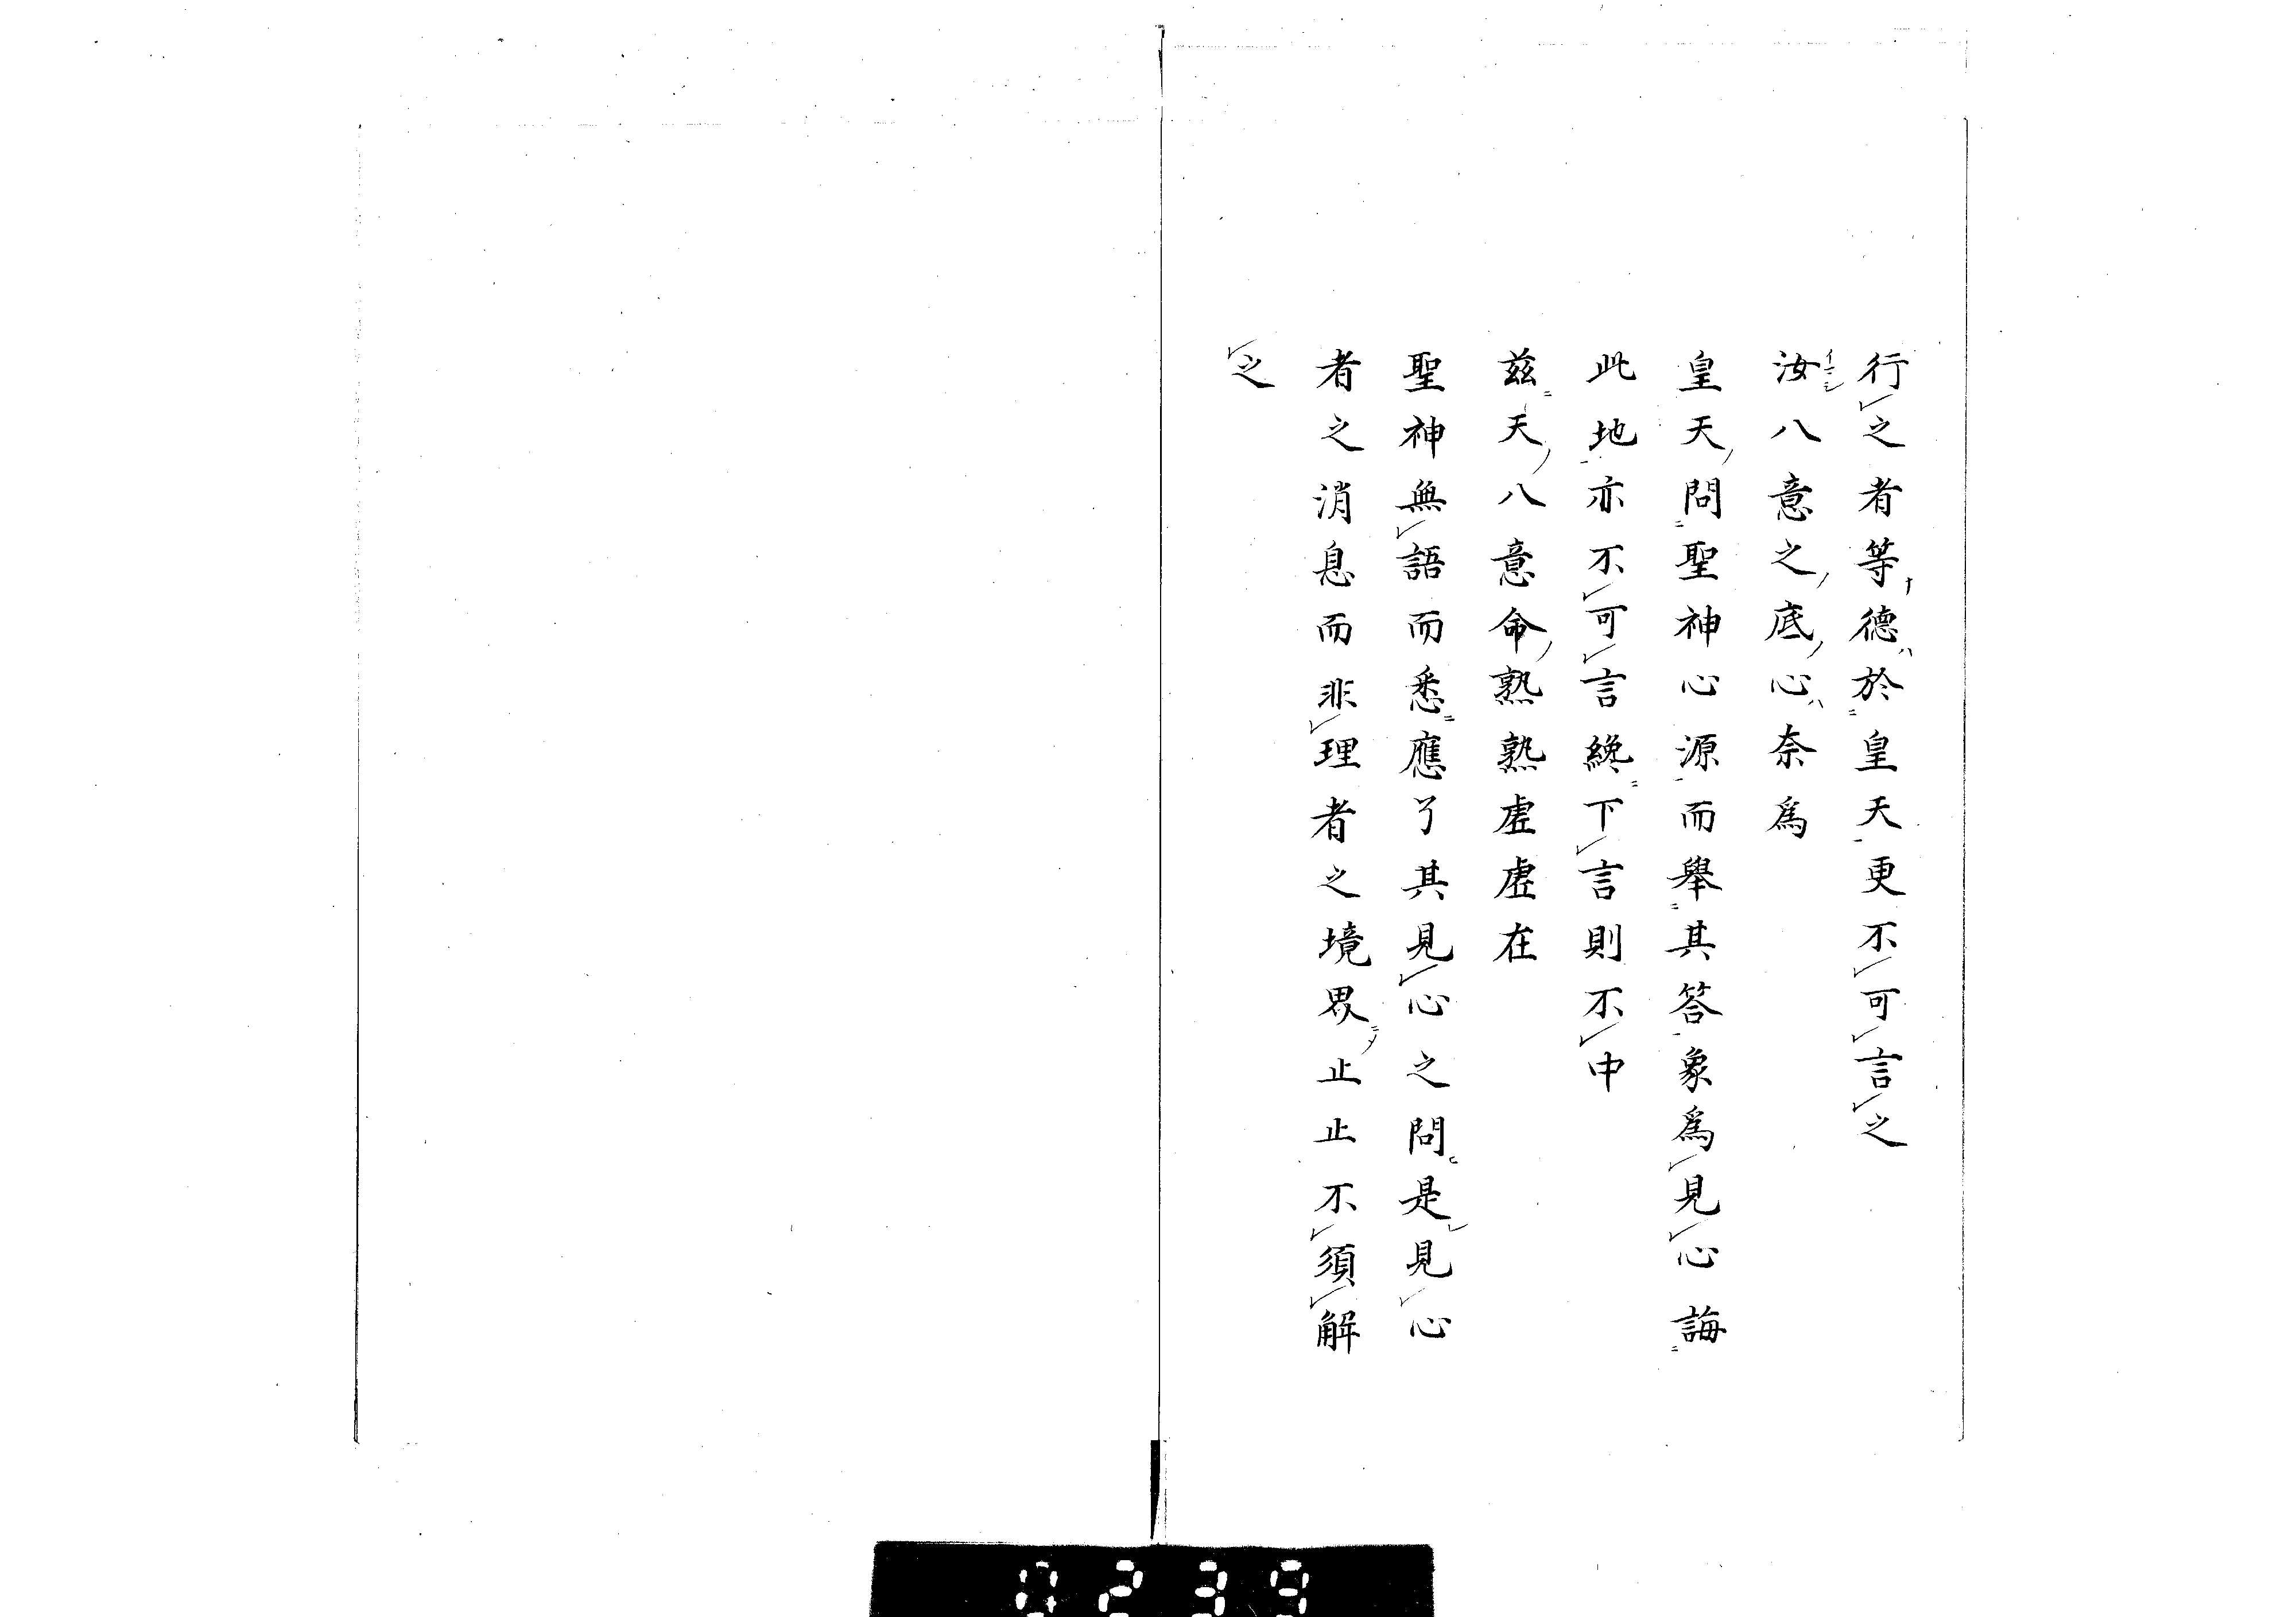 行之者等德於皇天更不可言之
汝八意之底心奈為
皇天問聖神心源而舉其答象為見心誨
此地亦不可言纔下言則不中
茲天八意命熟熟虛虛在
聖神無語而悉應了其見心之問是見心
者之消息而非理者之境界止止不須解
之
0239